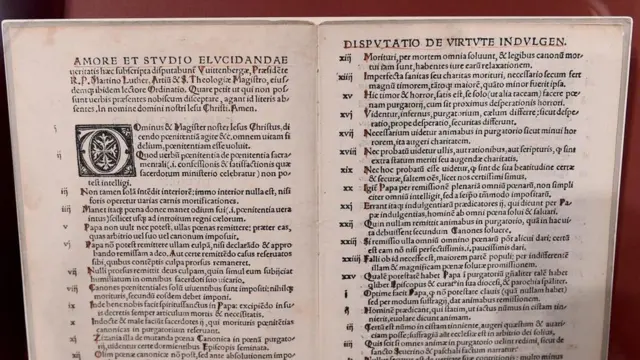 AMORE ET STVDIO ELVCIDANDAE
ueritatis hæc subscripta disputabunt Vuittenbergæ, Præsidẽte
R. P. Martino Luther, Artiũ & S. Theologiæ Magistro, eius-
demq; ibidem lectore Ordinario. Quare petit ut qui non pos-
sunt uerbis præsentes nobiscum disceptare, agant id literis ab-
sentes. In nomine domini nostri Iesu Christi. Amen.
i Ominus & Magister noster Iesus Christus, di-
cendo pœnitentiã agite &c. omnem uitam fi-
delium, pœnitentiam esse uoluit.
ij Quod uerbũ pœnitentia de pœnitentia sacra-
mentali (.i. confessionis & satisfactionis quæ
sacerdotum ministerio celebratur) non po-
test intelligi.
iij Non tamen solã intẽdit interiorẽ; immo interior nulla est, ni-
si foris operetur uarias carnis mortificationes.
iiij Manet itaq; pœna donec manet odium sui (.i. pœnitentia uera
intus) scilicet usq; ad introitum regni cælorum.
v Papa non uult nec potest, ullas pœnas remittere; præter eas,
quas arbitrio uel suo uel canonum imposuit.
vj Papa nõ potest remittere ullam culpã, nisi declarãdo & appro-
bando remissam a deo. Aut certe remittẽdo casus reseruatos
sibi, quibus contẽptis culpa prorsus remaneret.
vij Nulli prorsus remittit deus culpam, quin simul eum subijciat
humiliatum in omnibus sacerdoti suo uicario.
viij Canones pœnitentiales solũ uiuentibus sunt impositi; nihilq;
morituris, secundũ eosdem debet imponi.
ix Inde bene nobis facit spiritussanctus in Papa: excipiẽdo in su-
is decretis semper articulum mortis & necessitatis.
x Indocte & male faciũt sacerdotes ij, qui morituris pœnitẽtias
canonicas in purgatorium reseruant.
xj Zizania illa de mutanda pœna Canonica in pœnã purgato-
rij, uidentur certe dormientibus episcopis seminata.
xij Olim pœnæ canonicæ nõ post, sed ante absolutionem impo-
DISPVTATIO DE VIRTVTE INDVLGEN.
xiij Morituri, per mortem omnia soluunt, & legibus canonũ mor-
tui iam sunt, habentes iure earũ relaxationem.
xiiij Imperfecta sanitas seu charitas morituri, necessario secum fert
magnũ timorem, tãtoq; maiorẽ, quãto minor fuerit ipsa.
xv Hic timor & horror, satis est, se solo (ut alia taceam) facere pœ-
nam purgatorij, cum sit proximus desperationis horrori.
xvj Videntur, infernus, purgatorium, cælum differre; sicut despe-
ratio, prope desperatio, securitas differunt.
xvij Necessarium uidetur animabus in purgatorio sicut minui hor-
rorem, ita augeri charitatem.
xviij Nec probatũ uidetur ullis, aut rationibus, aut scripturis, q sint
extra statum meriti seu augendæ charitatis.
xix Nec hoc probatũ esse uidetur, q sint de sua beatitudine certæ
& securæ, saltem oẽs, licet nos certissimi simus.
xx Igit Papa per remissionẽ plenariã omniũ pœnarũ, non simpli-
citer omniũ intelligit, sed a seipso tãtummodo impositarũ.
xxj Errant itaq; indulgentiarũ prædicatores ij, qui dicunt per Pa-
pæ indulgentias, hominẽ ab omni pœna solui & saluari.
xxij Quin nullam remittit animabus in purgatorio, quã in hac ui-
ta debuissent secundum Canones soluere.
xxiij Si remissio ulla omniũ omnino pœnarũ põt alicui dari; certũ
est eam nõ nisi perfectissimis, i. paucissimis dari.
xxiiij Falli ob id necesse est, maiorem partẽ populi; per indifferentẽ
illam & magnificam pœnæ solutæ promissionem.
xxv Qualẽ potestatẽ habet Papa ĩ purgatoriũ gñaliter talẽ habet
q̃libet Episcopus & curat9 in sua diocesi, & parochia sp̃aliter.
i Optime facit Papa, q nõ potestate clauis (quã nullam habet)
sed per modum suffragij, dat animabus remissionem.
ij Hominẽ prædicant, qui statim, ut iactus nũmus in cistam tin-
nierit, euolare dicunt animam.
iij Certũ est nũmo in cistam tinniente, augeri quæstum & auari-
ciam posse; suffragiũ aũt ecclesiæ est in arbitrio dei solius.
iiij Quis scit si omnes animæ in purgatorio uelint redimi, sicut de
sancto Seuerino & paschali factum narratur.